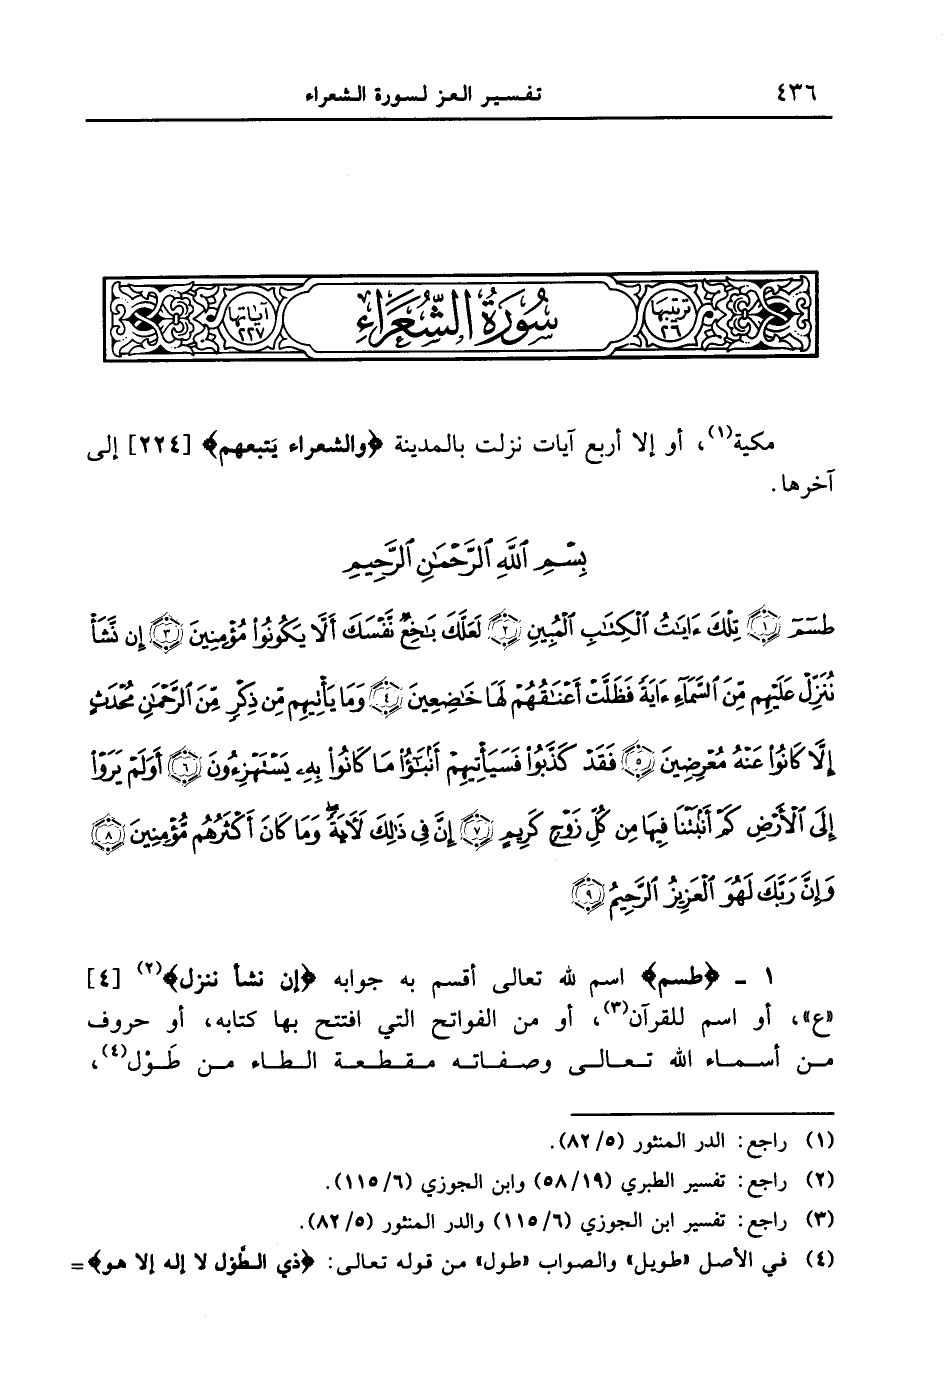 ٤٣٦ تفسير العز لسورة الشعراء
ترتيبها ٢٦ سُورَةُ الشُّعَرَاءِ آياتها ٢٢٧
مكية(١)، أو إلا أربع آيات نزلت بالمدينة ﴿والشعراء يَتبعهم﴾ [٢٢٤] إلى
آخرها.
بِسْمِ ٱللَّهِ ٱلرَّحْمَٰنِ ٱلرَّحِيمِ
طسٓمٓ ١ تِلْكَ ءَايَٰتُ ٱلْكِتَٰبِ ٱلْمُبِينِ ٢ لَعَلَّكَ بَٰخِعٌ نَّفْسَكَ أَلَّا يَكُونُوا۟ مُؤْمِنِينَ ٣ إِن نَّشَأْ
نُنَزِّلْ عَلَيْهِم مِّنَ ٱلسَّمَآءِ ءَايَةً فَظَلَّتْ أَعْنَٰقُهُمْ لَهَا خَٰضِعِينَ ٤ وَمَا يَأْتِيهِم مِّن ذِكْرٍ مِّنَ ٱلرَّحْمَٰنِ مُحْدَثٍ
إِلَّا كَانُوا۟ عَنْهُ مُعْرِضِينَ ٥ فَقَدْ كَذَّبُوا۟ فَسَيَأْتِيهِمْ أَنۢبَٰٓؤُا۟ مَا كَانُوا۟ بِهِۦ يَسْتَهْزِءُونَ ٦ أَوَلَمْ يَرَوْا۟
إِلَى ٱلْأَرْضِ كَمْ أَنۢبَتْنَا فِيهَا مِن كُلِّ زَوْجٍ كَرِيمٍ ٧ إِنَّ فِى ذَٰلِكَ لَءَايَةً ۖ وَمَا كَانَ أَكْثَرُهُم مُّؤْمِنِينَ ٨
وَإِنَّ رَبَّكَ لَهُوَ ٱلْعَزِيزُ ٱلرَّحِيمُ ٩
١ - ﴿طسم﴾ اسم لله تعالى أقسم به جوابه ﴿إن نشأ ننزل﴾(٢) [٤]
«ع»، أو اسم للقرآن(٣)، أو من الفواتح التي افتتح بها كتابه، أو حروف
من أسماء الله تعالى وصفاته مقطعة الطاء من طَوْل(٤)،
(١) راجع: الدر المنثور (٨٢/٥).
(٢) راجع: تفسير الطبري (٥٨/١٩) وابن الجوزي (١١٥/٦).
(٣) راجع: تفسير ابن الجوزي (١١٥/٦) والدر المنثور (٨٢/٥).
(٤) في الأصل «طويل» والصواب «طول» من قوله تعالى: ﴿ذي الطَّوْل لا إله إلا هو﴾=